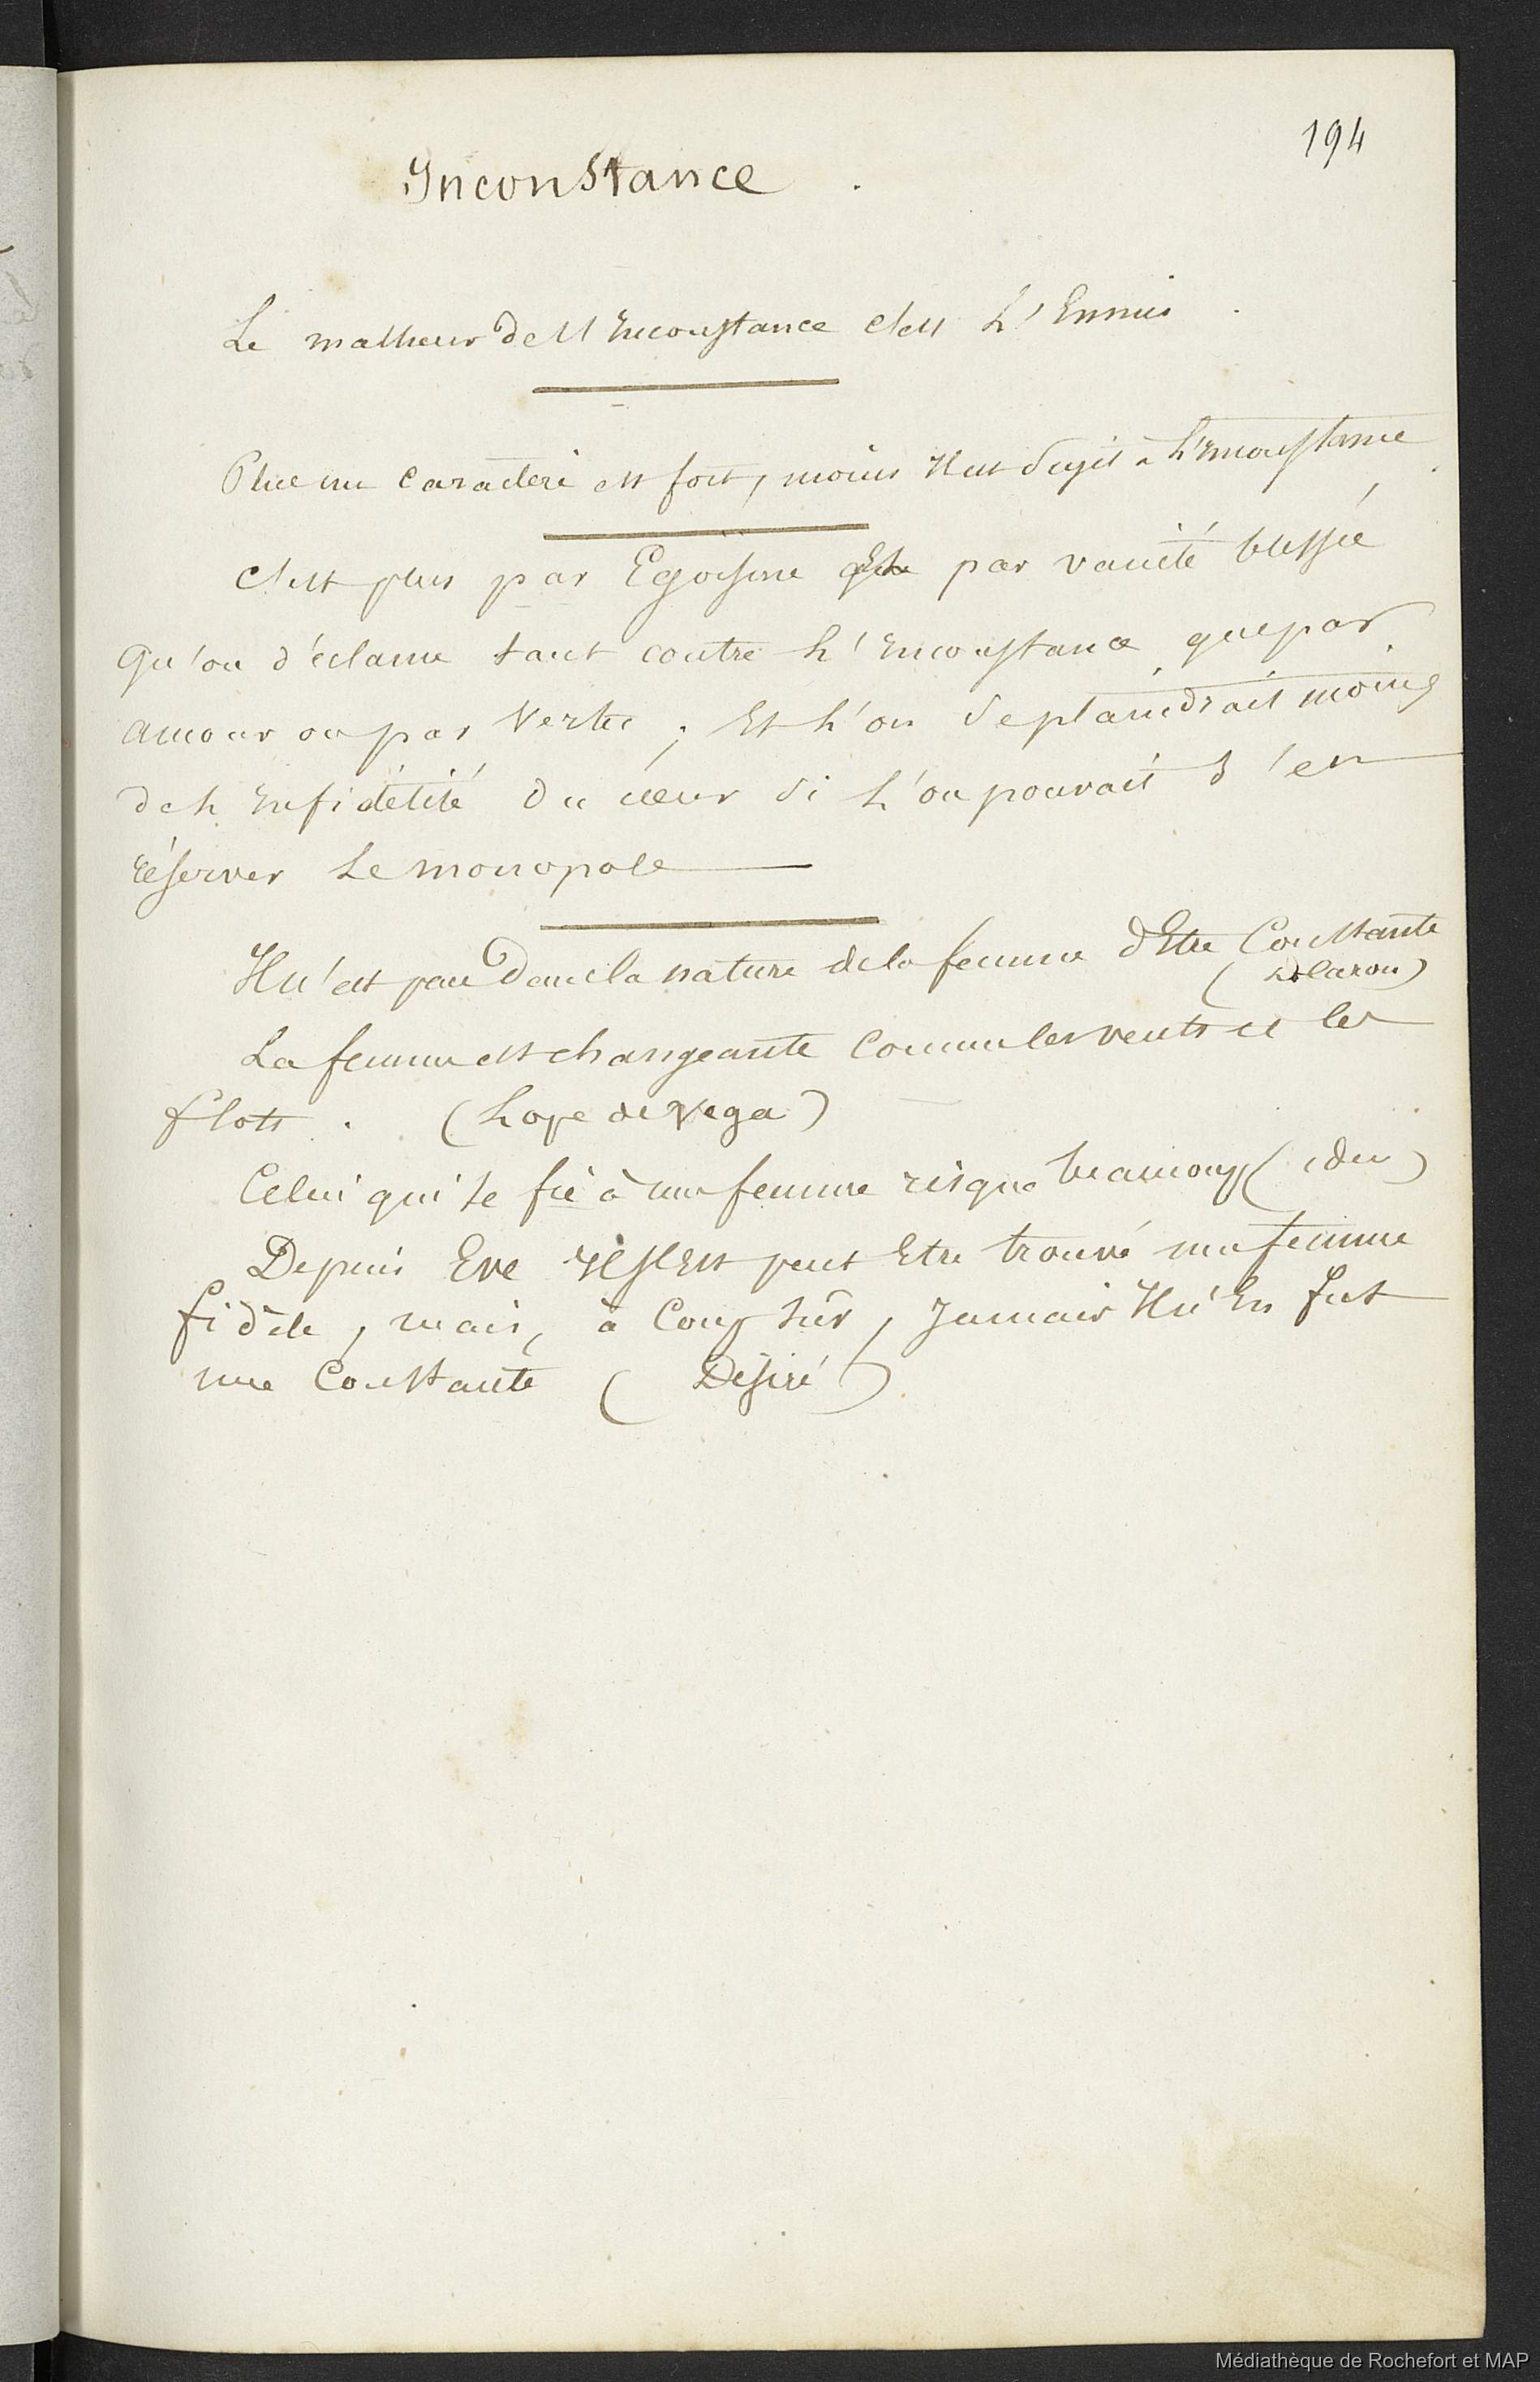 194
Inconstance.
Le malheur de l'Inconstance c'est L'Ennui.
Plus un caractère est fort, moins Il est sujet à L'Inconstance.
C'est plus par Egoïsme Et par vanité blessée
qu'on déclame tant contre L'Inconstance, que par
amour ou par vertu ; Et L'on se plaindrait moins
de L'Infidélité du cœur si L'on pouvait s'en
réserver Le monopole
Il n'est pas dans la nature de la femme d'Etre Constante
La femme est changeante Comme les vents et les
flots. (Lope de Vega)
Celui qui se fie à une femme risque beaucoup (idem)
Depuis Eve Il s'Est peut Etre trouvé une femme
fidèle, mais, à Coup sûr, Jamais Il n'En fut
une Constante (Désiré)
Médiathèque de Rochefort et MAP